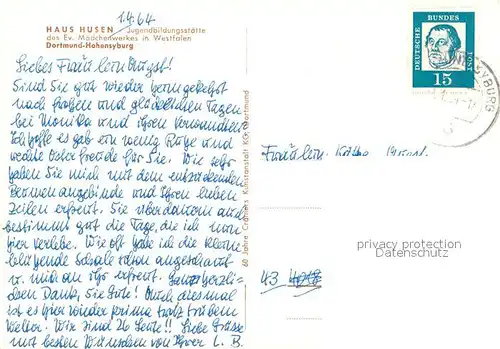 1.4.64
HAUS HUSEN Jugendbildungsstätte
des Ev. Mädchenwerkes in Westfalen
Dortmund-Hohensyburg
Liebes Fräulein
Sind Sie gut wieder heimgekehrt
nach frohen und glücklichen Tagen
bei Monika und Ihren Verwandten
Ich hoffe es gab ein wenig Ruhe und
rechte Osterfreude für Sie. Wie sehr
haben Sie mich mit dem entzückenden
Blumenangebinde und Ihren lieben
Zeilen erfreut. Sie überdauern auch
bestimmt gut die Tage, die ich nun
hier verlebe. Wie oft habe ich die kleine
blühende Schale schon angeschaut
u. mich an ihr erfreut. Ganz herzli-
chen Dank, Sie Gute! Auch diesmal
ist es hier wieder prima trotz trübem
Wetter. Wir sind 26 Leute!! Liebe Grüsse
mit besten Wünschen von Ihrer L. B.
60 Jahre Cramers Kunstanstalt KG, Dortmund
DEUTSCHE BUNDES POST
15
Fräulein
privacy protection
Datenschutz
43